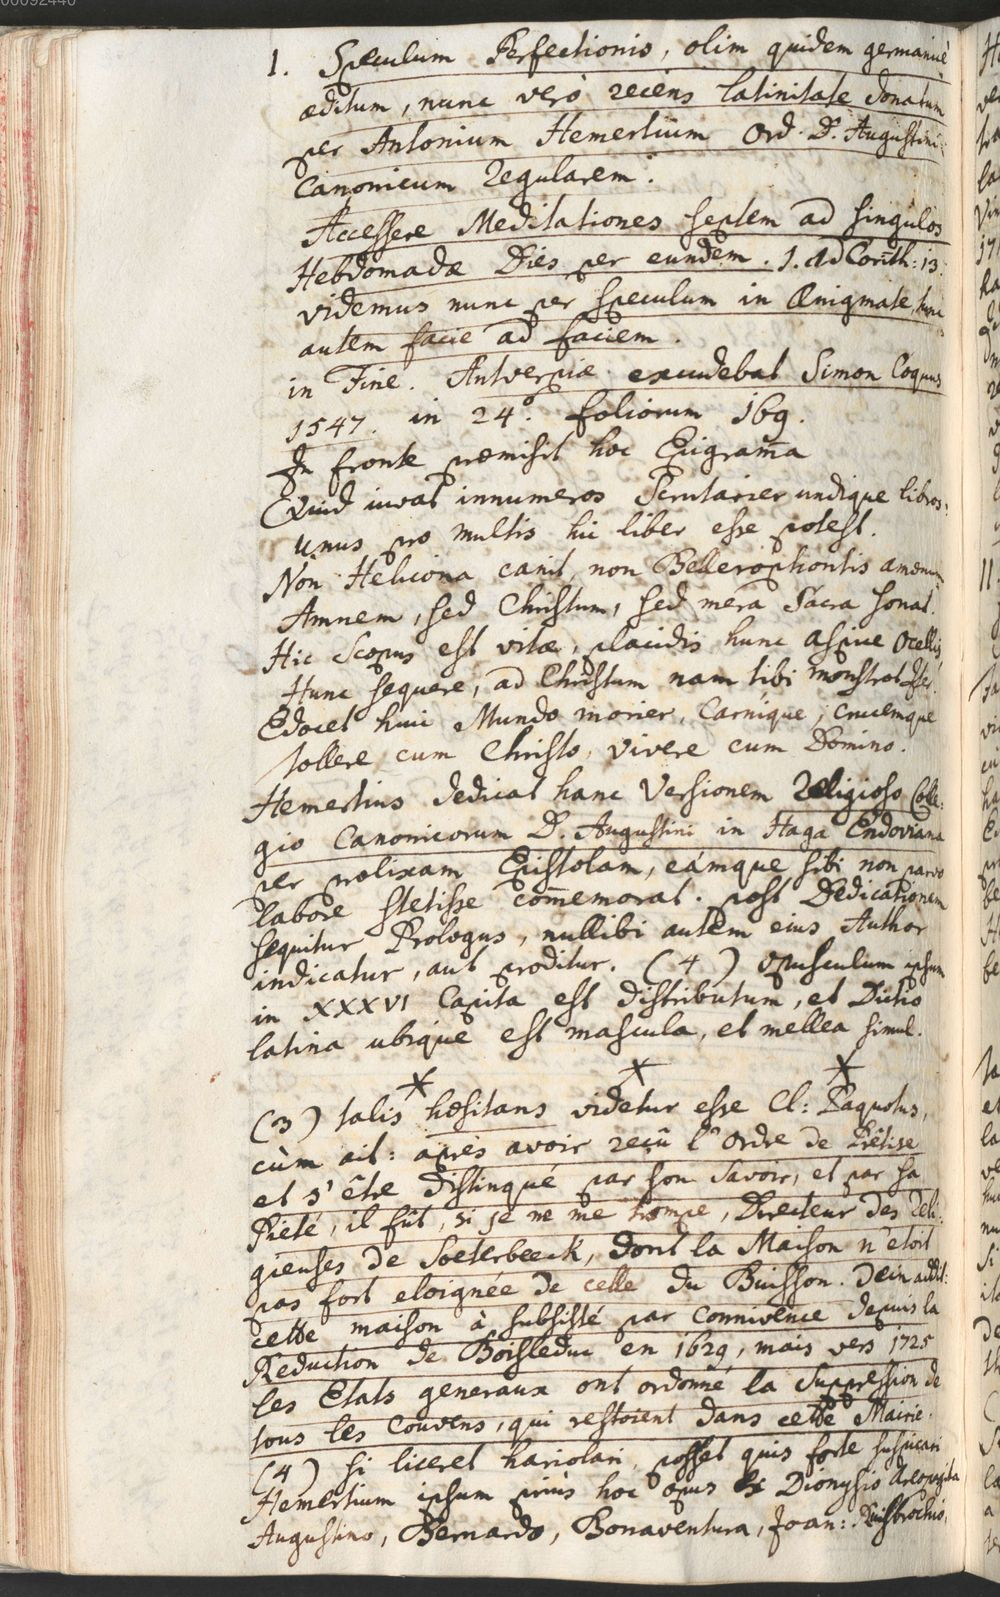 00092440
1. Speculum Perfectionis, olim quidem germanicè
æditum, nunc verò recèns latinitate donatum
per Antonium Hemertium Ord. D. Augustini
Canonicum Regularem.
Accessere Meditationes septem ad singulos
Hebdomadæ Dies per eundem. 1. ad Corīth: 13.
videmus nunc per speculum in Ænigmate, tunc
autem facie ad faciem.
in Fine. Antverpiæ excudebat Simon Coquus
1547. in 24.° foliorum 169.
In fronte præmisit hoc Epigram̄a
Quid iuvat innumeros Scrutarier undique libros.
Unus pro multis hic liber esse potest.
Non Helicona canit, non Bellerophontis amœnum
Amnem, sed Christum, sed mera Sacra sonat.
Hic Scopus est vitæ, placidis hunc aspice Ocellis,
Hunc sequere, ad Christum nam tibi monstrat Iter.
Edocet huic Mundo morier, Carnique, crucemque
tollere cum Christo, vivere cum Domino.
Hemertius dedicat hanc Versionem Religioso Colle:
gio Canonicorum D. Augustini in Haga Endoviana
per prolixam Epistolam, eámque sibi non parvo
labore stetisse com̄emorat. post Dedicationem
sequitur Prologus, nullibi autem eius Author
indicatur, aut proditur. (4) opusculum ipsum
in XXXVI Capita est distributum, et Dictio
latina ubique est mascula, et mellea simul.
* * *
(3) talis hæsitans videtur esse Cl: Paquotus,
cùm ait: après avoir reçû l'Ordre de Prêtise
et s'être distingué par son Savoir, et par sa
Pieté, il fût, si je ne me trompe, Directeur des Reli:
gieuses de Soeterbeeck, dont la Maison n'etoit
pas fort eloignée de celle du Buisson. dein addit:
cette maison à subsisté par connivence depuis la
Reduction de Boisleduc en 1629, mais vers 1725
les Etats generaux ont ordonné la suppression de
tous les couvens, qui restoient dans cette Mairie.
(4) si liceret hariolari, posset quis forte suspicari
Hemertium ipsum priùs hoc opus ex Dionysio Areopagita
Augustino, Bernardo, Bonaventura, Joan: Ruisbrochio,